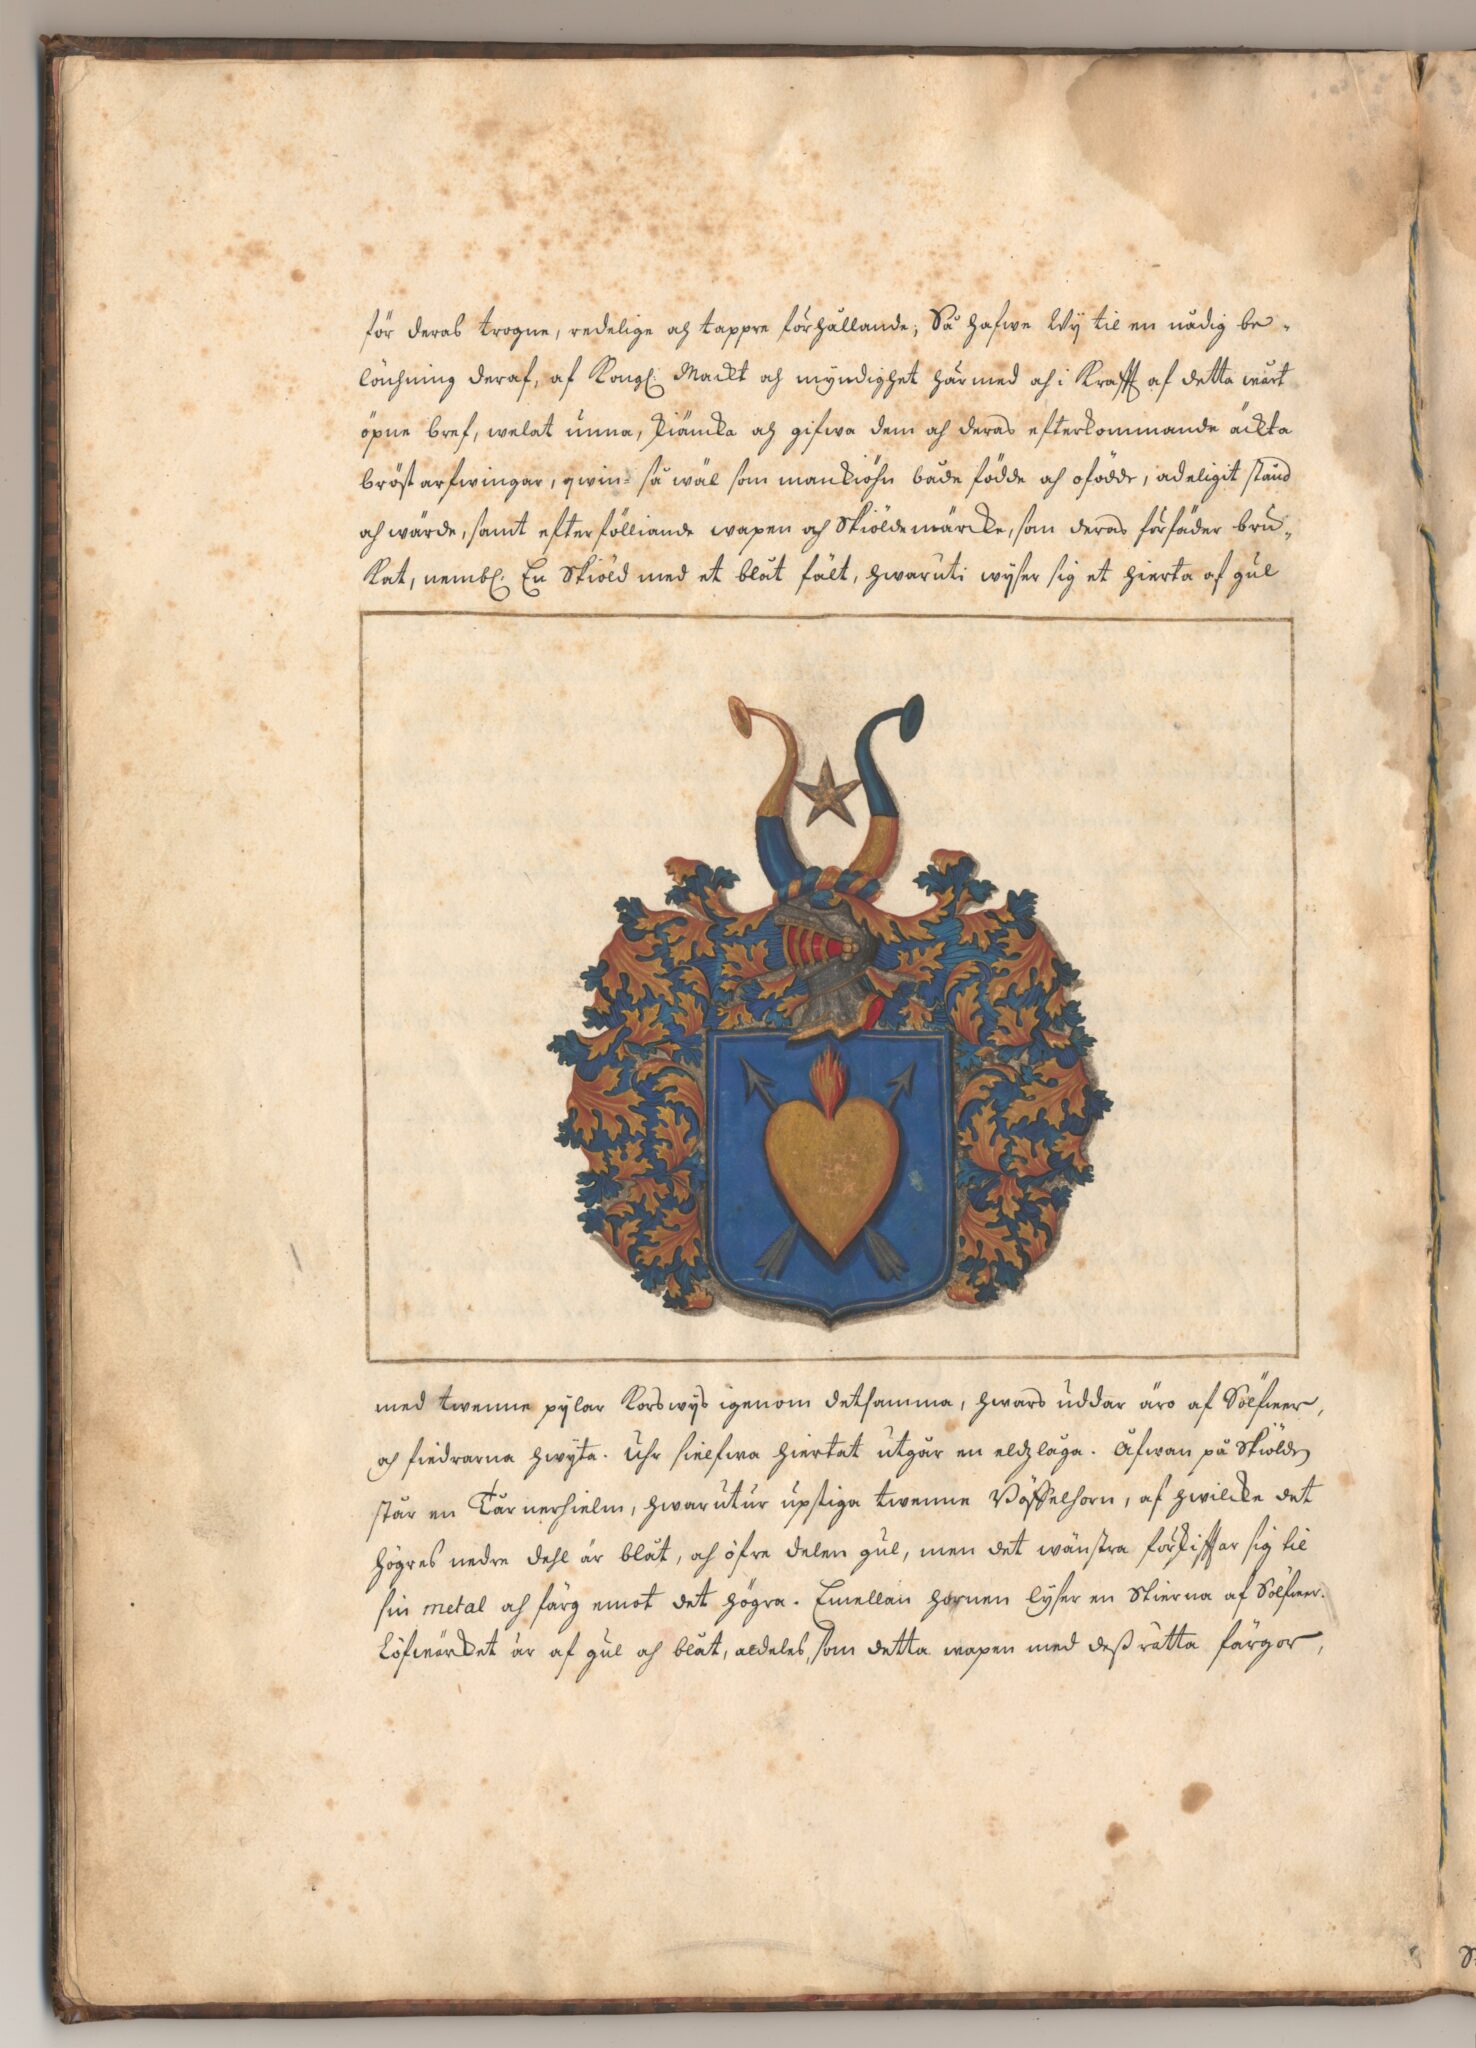 för deras trogne, redelige och tappre förhållande; Så hafwe Wy til en nådig be-
löhning deraf, af Kongl. Mackt och myndighet härmed och i Krafft af detta wårt
öpne bref, welat unna, skiäncka och gifwa dem och deras efterkommande ächta
bröstarfwingar, qwin- så wäl som mankiöhn både födde och ofödde, adeligit stånd
och wärde, samt efterfölliande wapen och Skiöldemärcke, som deras förfäder bru-
kat, nembl. En Skiöld med et blåt fält, hwaruti wyser sig et hierta af gul
med twenne pylar korswys igenom detsamma, hwars uddar äro af Sölfwer,
och fiedrarna hwyta. Uhr sielfwa hiertat utgår en eldzlåga. Åfwan på Skiölden
står en Tårnerhielm, hwarutur upstiga twenne Böffelhorn, af hwilcke det
högres nedre dehl är blåt, och öfre delen gul, men det wänstra förskiffar sig til
sin metal och färg emot det högra. Emellan hornen lyser en Stierna af Sölfwer.
Löfwärcket är af gul och blåt, aldeles, som detta wapen med deß rätta färgor,